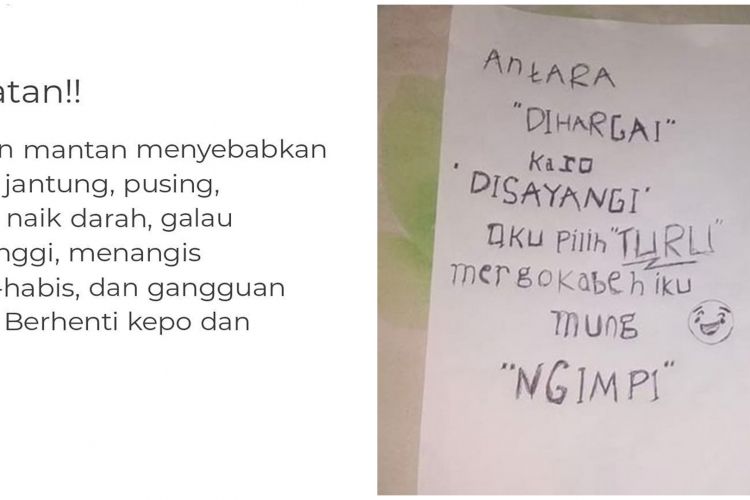 atan!!
n mantan menyebabkan
jantung, pusing,
naik darah, galau
nggi, menangis
-habis, dan gangguan
Berhenti kepo dan
AntARA
"DIHARGAI"
karo
'DISAYANGI'
AKU Pilih "TURU"
mergo kabeh iku
mung
"NGIMPI"